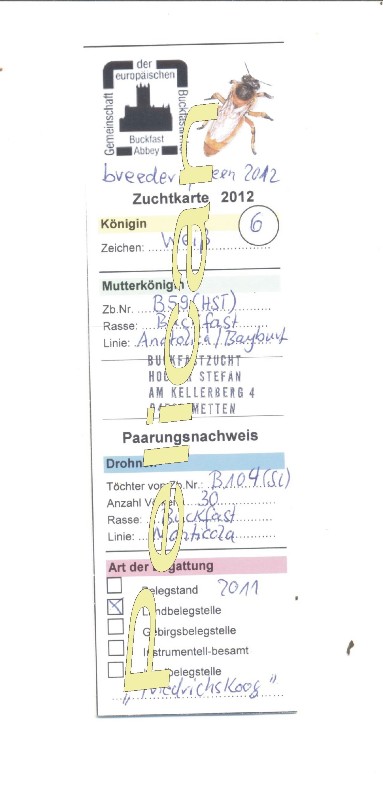 Gemeinschaft der europäischen
Buckfast
Abbey
breeder queen 2012
Zuchtkarte 2012
Königin
6
Zeichen: Weiß
Mutterkönigin
Zb.Nr. B59(HST)
Rasse: Buckfast
Linie: Anatolica/Bayburt
BUCKFASTZUCHT
STEFAN
AM KELLERBERG 4
METTEN
Paarungsnachweis
Drohnen
Töchter von Zb.Nr.: B104(SL)
Anzahl Völker: 30
Rasse: Buckfast
Linie: Monticola
Art der Begattung
Belegstand 2011
Landbelegstelle
Gebirgsbelegstelle
Instrumentell-besamt
"Friedrichskoog"